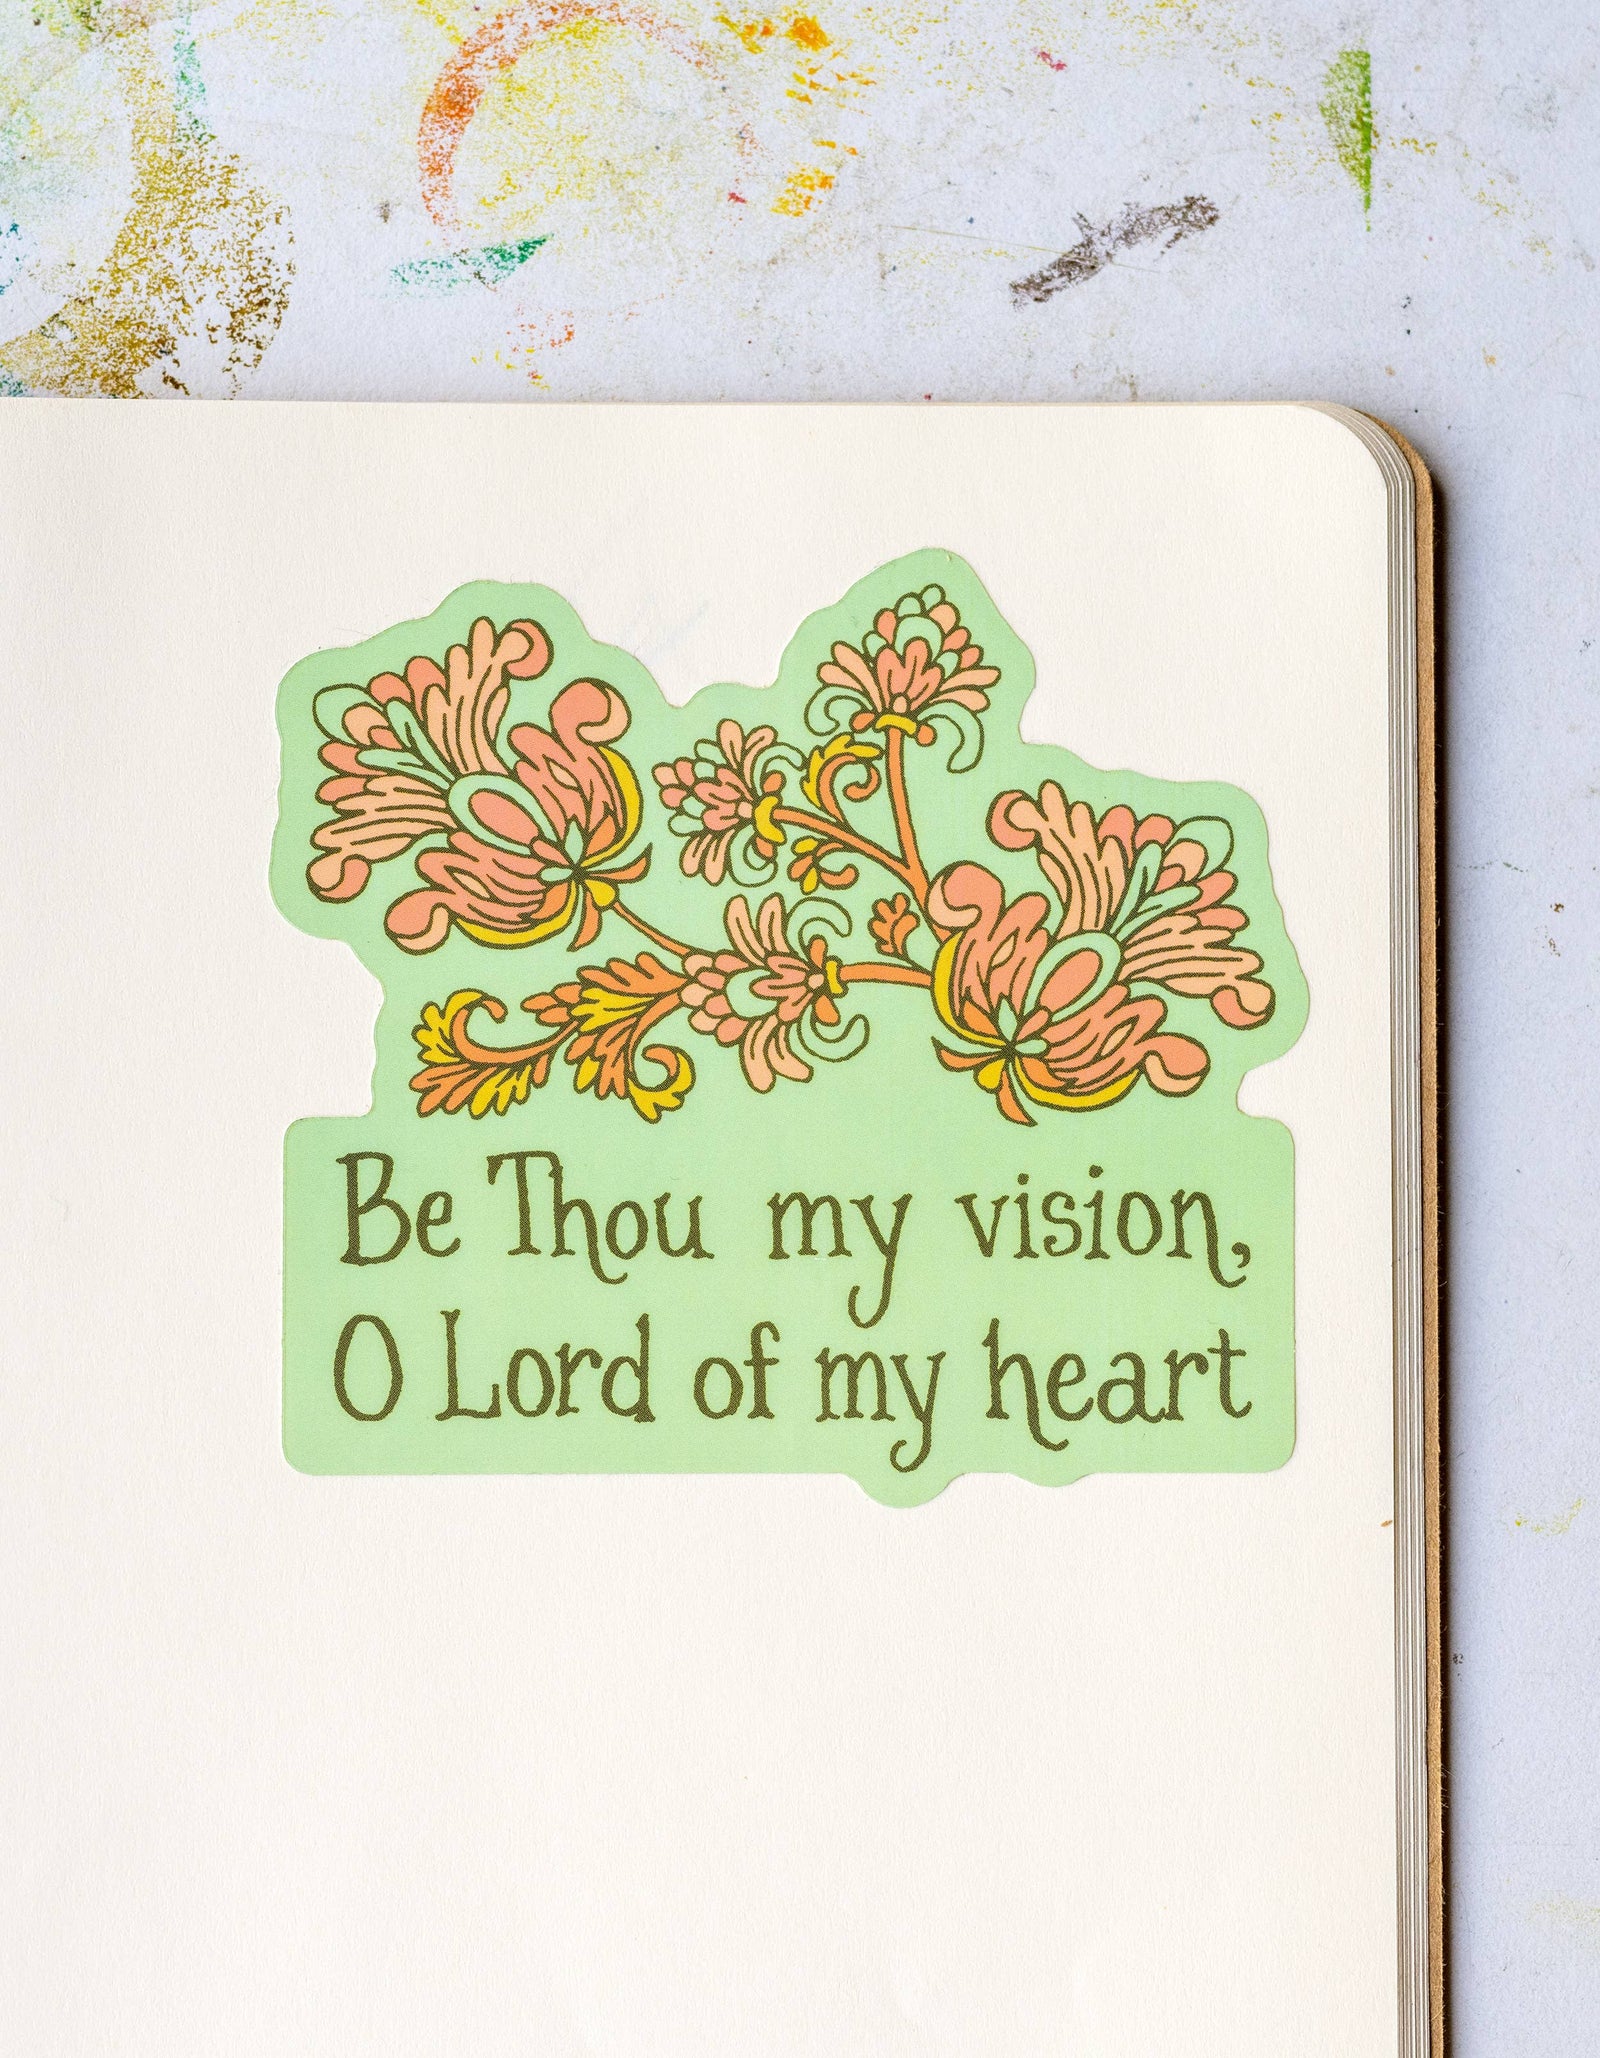 Be Thou my vision,
O Lord of my heart